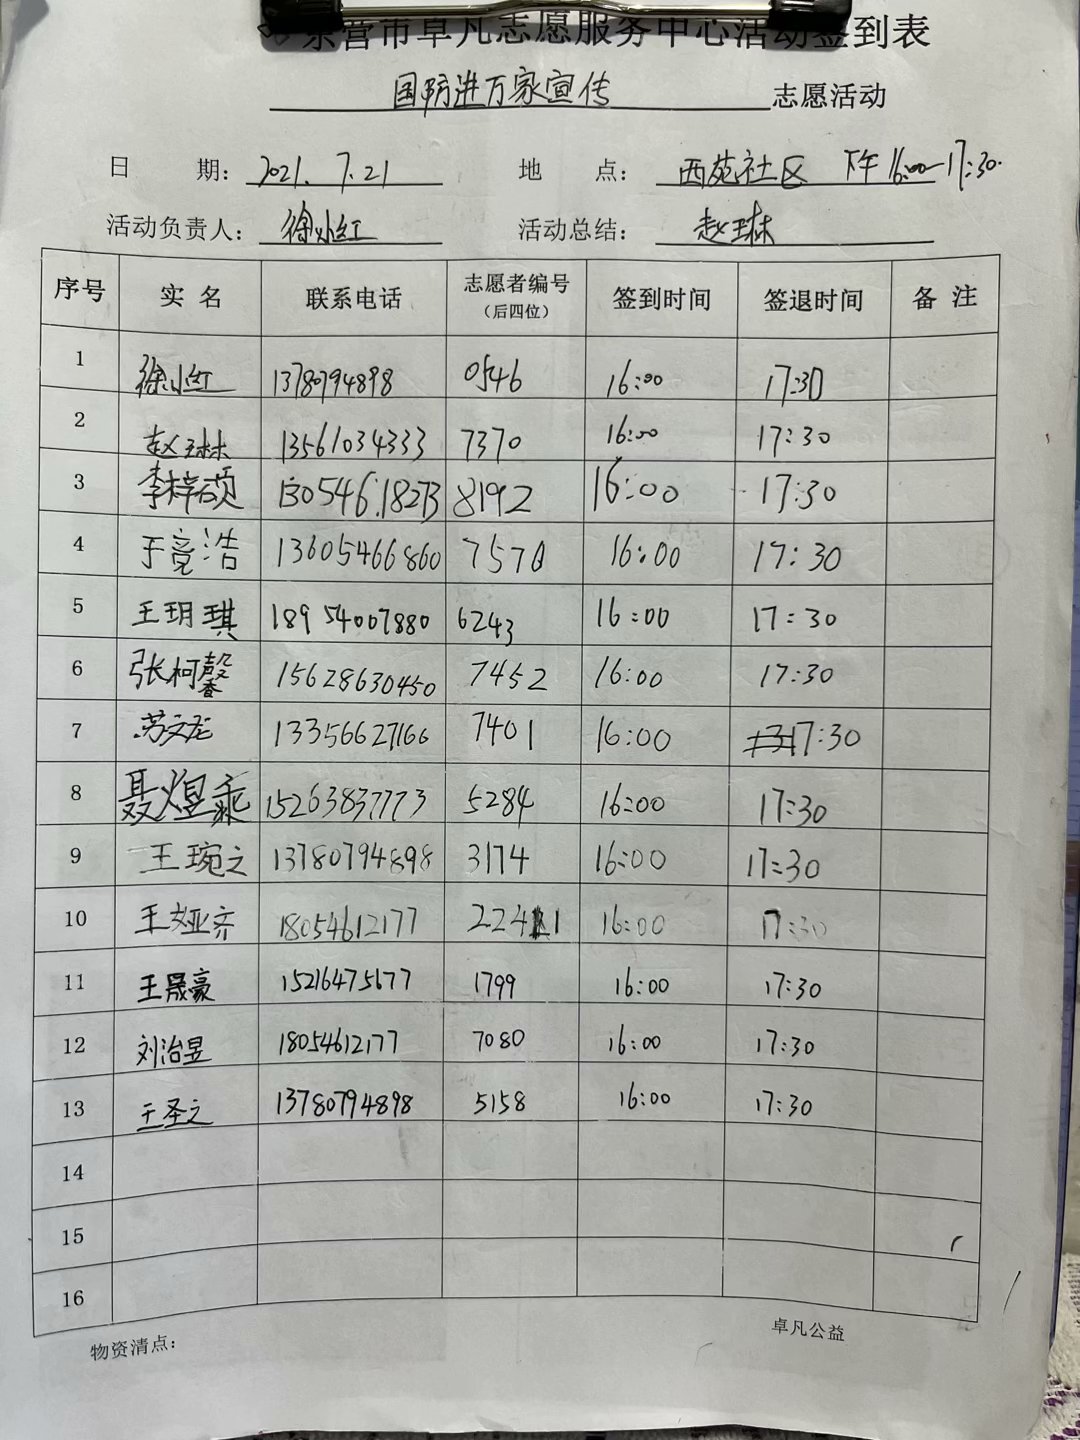 东营市卓凡志愿服务中心活动签到表
国防进万家宣传 志愿活动
日 期：2021.7.21 地 点：西苑社区 下午16:00-17:30.
活动负责人：徐小红 活动总结：赵琳
序号 实 名 联系电话 志愿者编号（后四位） 签到时间 签退时间 备 注
1 徐小红 13780794898 0546 16:00 17:30
2 赵琳 13561034333 7370 16:00 17:30
3 李梓硕 13054618273 8192 16:00 17:30
4 于竟浩 13605466860 7570 16:00 17:30
5 王玥琪 18954007880 6243 16:00 17:30
6 张柯馨 15628630450 7452 16:00 17:30
7 苏文龙 13356627166 7401 16:00 17:30
8 聂煜 15263837773 5284 16:00 17:30
9 王琬之 13780794898 3174 16:00 17:30
10 王娅齐 18054612177 2241 16:00 17:30
11 王晟豪 15216475177 1799 16:00 17:30
12 刘治昱 18054612177 7080 16:00 17:30
13 王圣之 13780794898 5158 16:00 17:30
14
15
16
物资清点：
卓凡公益